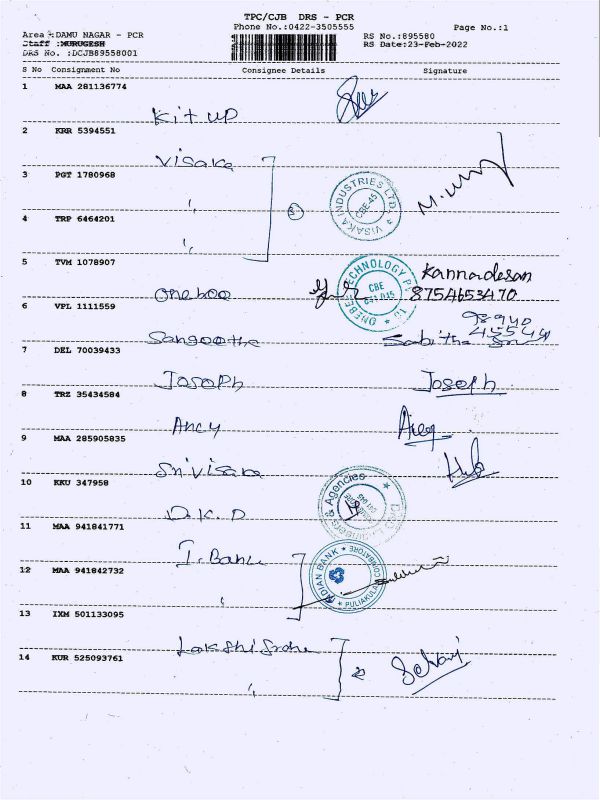 TPC/CJB DRS - PCR
Phone No.:0422-3505555
Page No.:1
Area :DAMU NAGAR - PCR
RS No.:895580
Staff :MURUGESH
RS Date:23-Feb-2022
DRS No. :DCJB89558001
S No Consignment No Consignee Details Signature
1 MAA 281136774
Kit up
2 KRR 5394551
Visaka
3 PGT 1780968
"
VISAKA INDUSTRIES LTD.
CBE-45
4 TRP 6464201
"
5 TVM 1078907
TECHNOLOGY
CBE
Kannadesan
8754653470
6 VPL 1111559
Sangeetha
Sabitha
98940
45544
7 DEL 70039433
Joseph Joseph
8 TRZ 35434584
Ancy
9 MAA 285905835
Sri visaka
10 KKU 347958
& Agencies
D.K.D
11 MAA 941841771
I. Bank
INDIAN BANK
PULIAKULAM
COIMBATORE
12 MAA 941842732
"
13 IXM 501133095
14 KUR 525093761
Selvaj
"